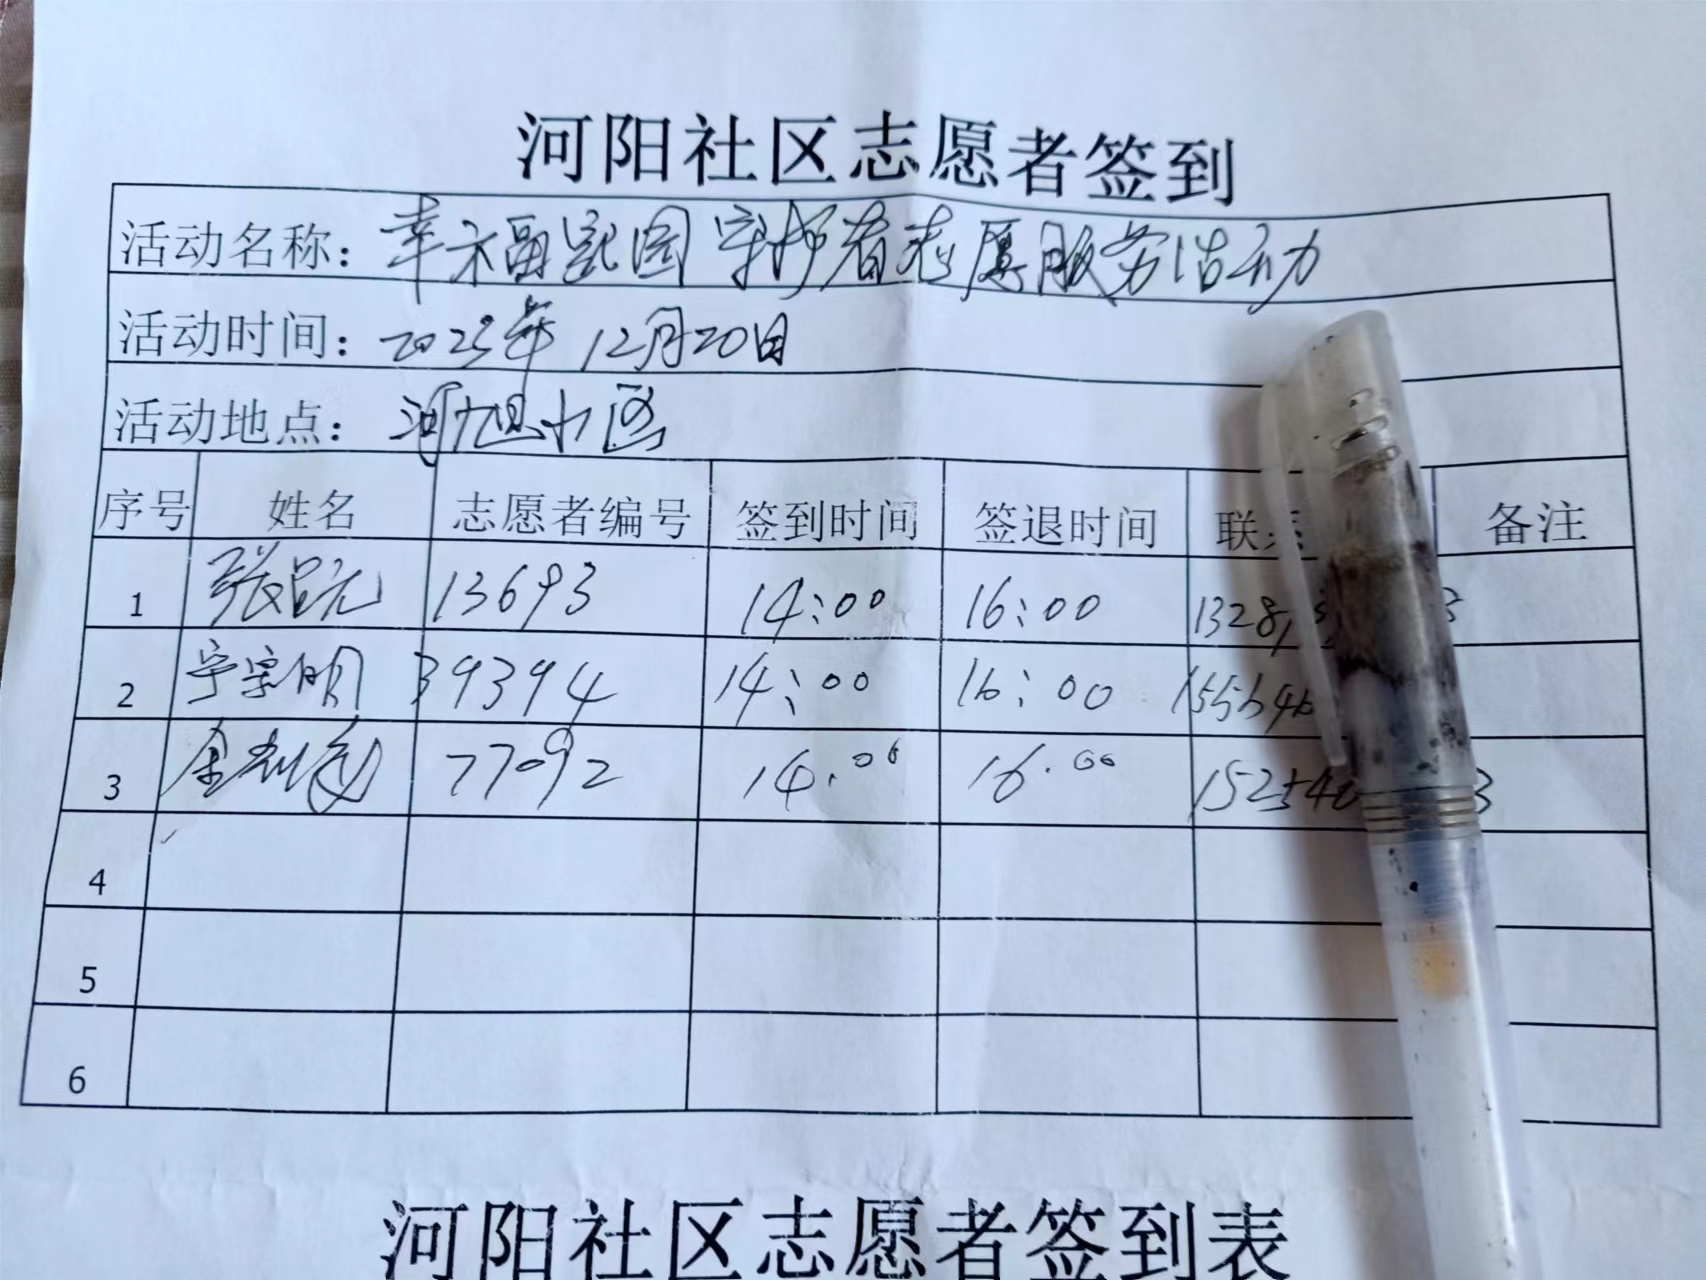 河阳社区志愿者签到
活动名称：幸福家园守护者志愿服务活动
活动时间：2025年12月20日
活动地点：河旭小区
序号 姓名 志愿者编号 签到时间 签退时间 联系 备注
1 张昌元 13693 14:00 16:00 1328
2 宗明 39394 14:00 16:00
3 77092 14:00 16:00
4
5
6
河阳社区志愿者签到表